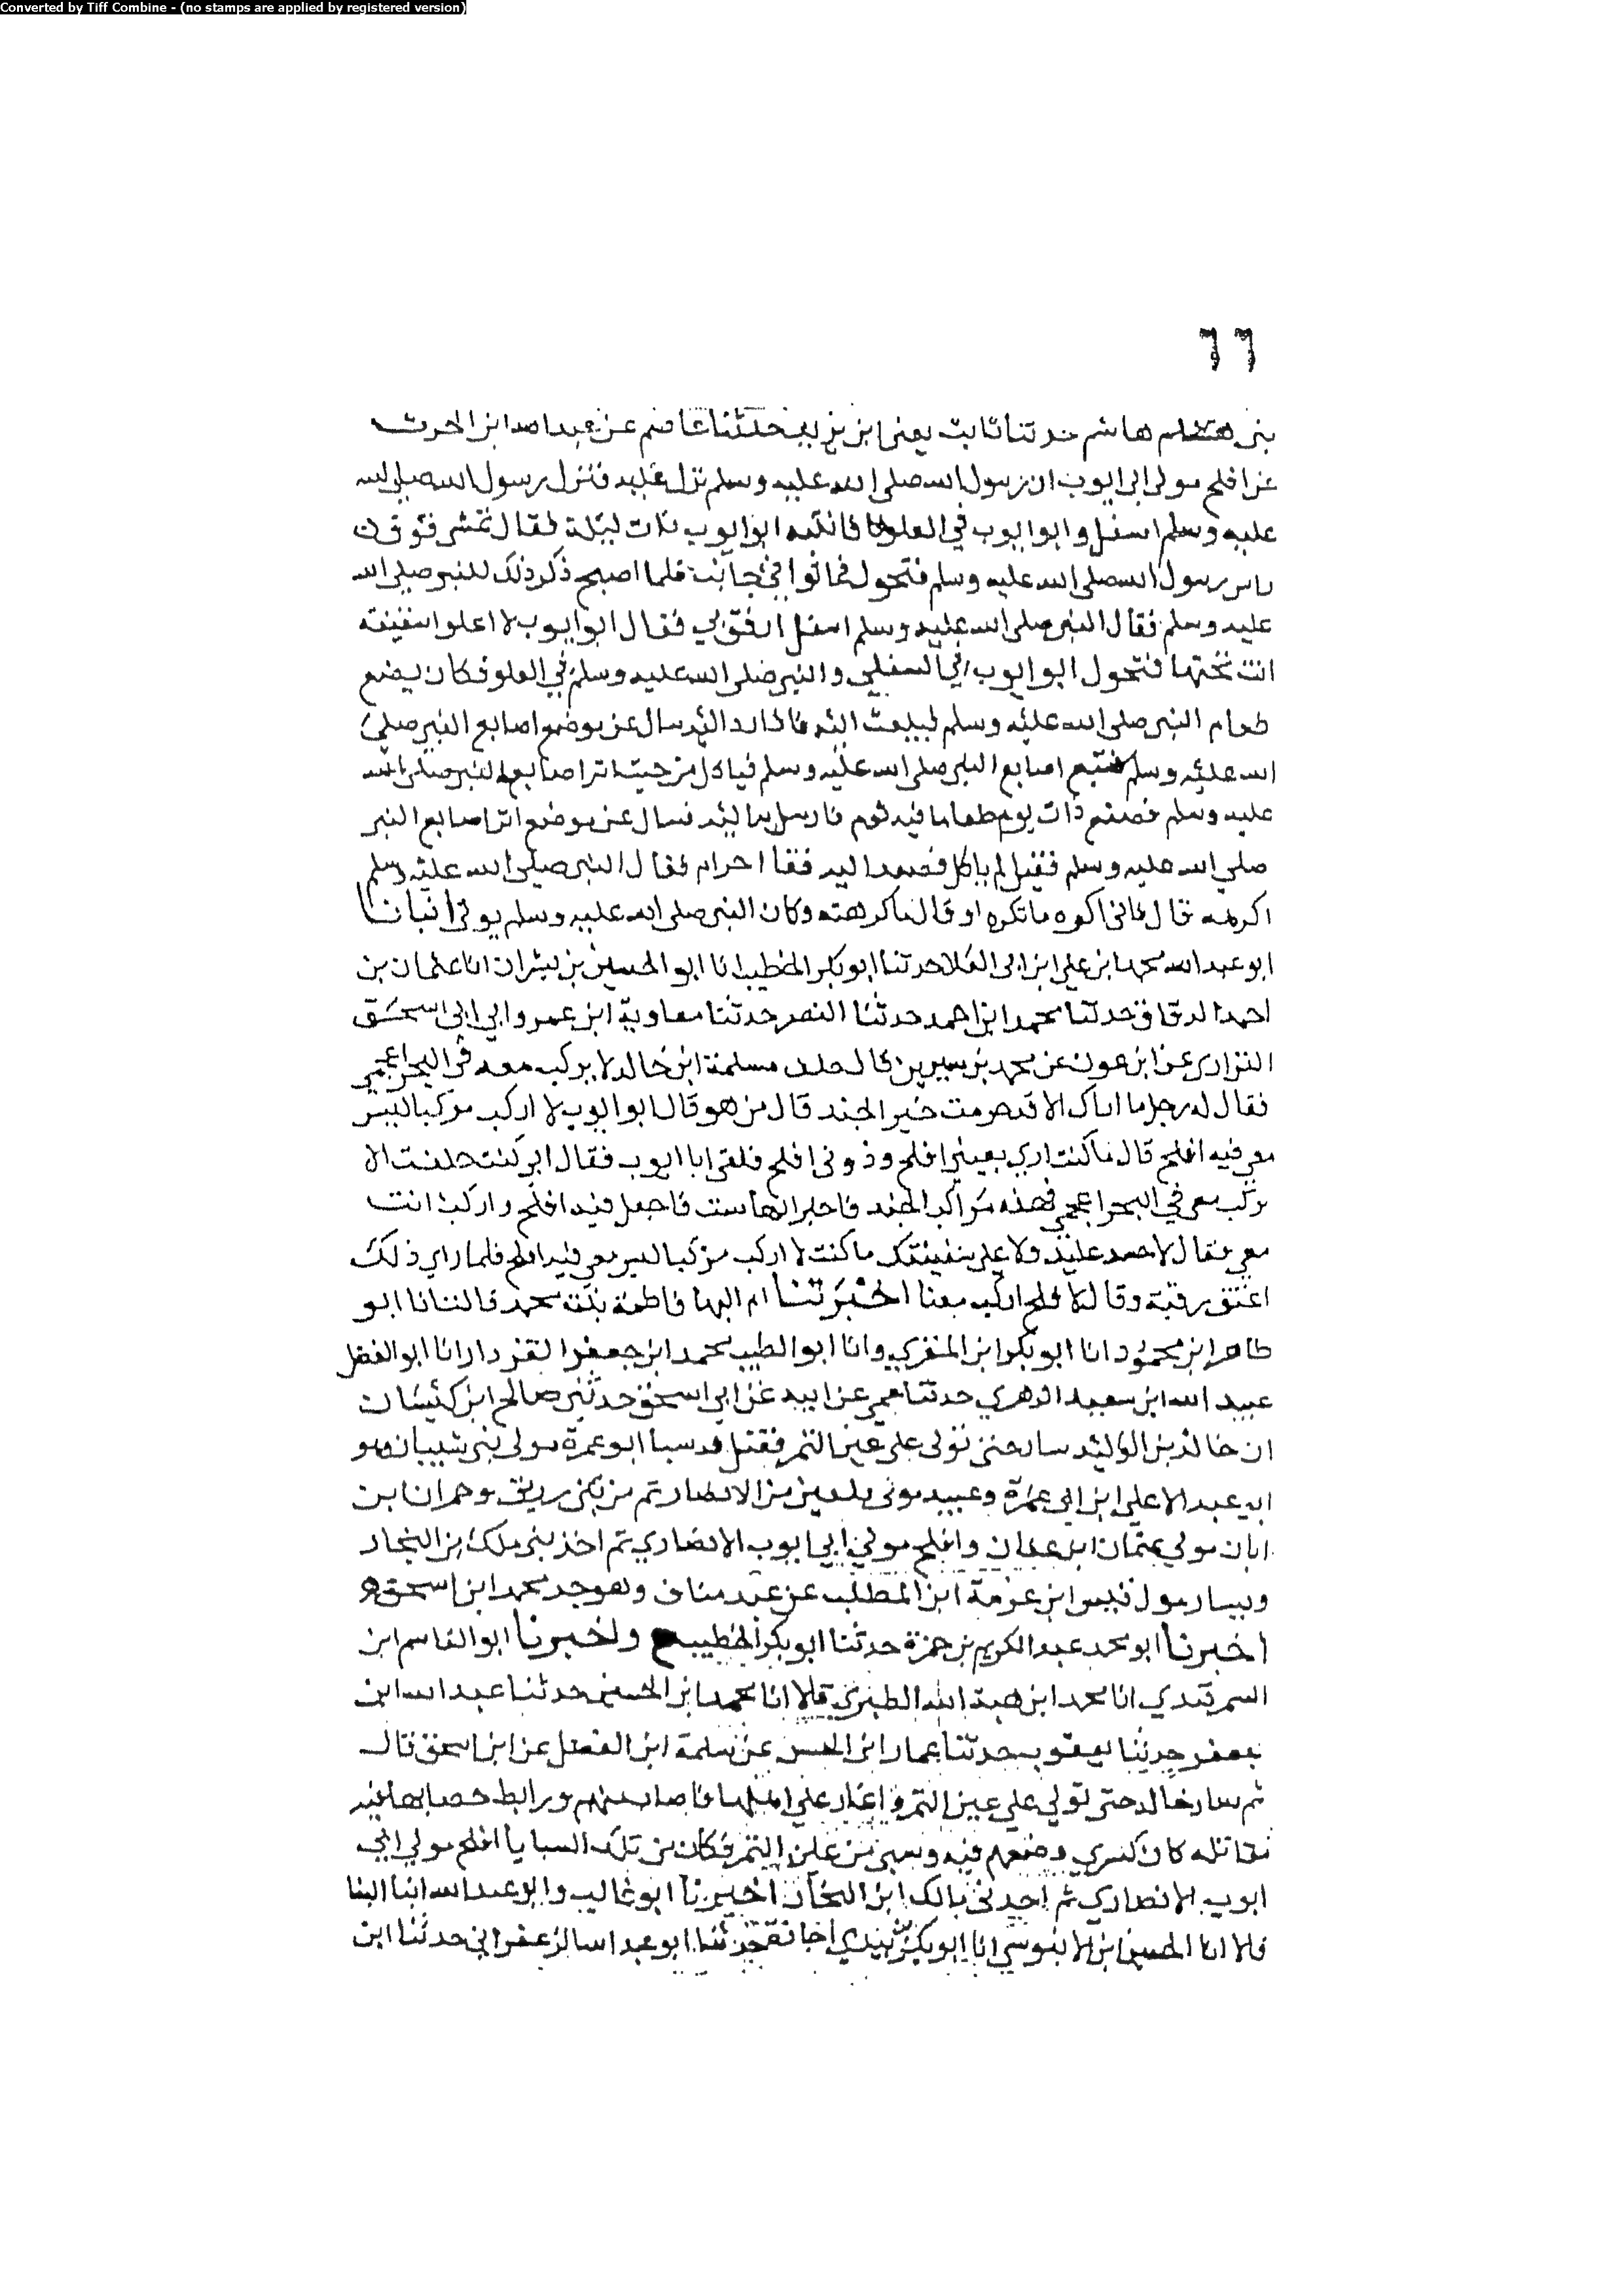 Converted by Tiff Combine - (no stamps are applied by registered version)
٦٦
بنى هاشم حدثنا ثابت يعنى ابن يزيد حدثنا عاصم عن عبدالله ابن الحرث
عن افلح مولى ابى ايوب ان رسول الله صلى الله عليه وسلم نزل عليه فنزل رسول الله صلى الله
عليه وسلم اسفل وابو ايوب في العلو فانتبه ابو ايوب ذات ليلة فقال نمشى فوق
راس رسول الله صلى الله عليه وسلم فتحول فباتوا في جانب فلما اصبح ذكر ذلك للنبى صلى الله
عليه وسلم فقال النبى صلى الله عليه وسلم اسفل ارفق بي فقال ابو ايوب لا اعلو اسقيفة
انت تحتها فتحول ابو ايوب في السفلي والنبى صلى الله عليه وسلم في العلو فكان يضع
طعام النبى صلى الله عليه وسلم فيبعث اليه فاذا رد اليه سال عن موضع اصابع النبى صلى
الله عليه وسلم فتبع اصابع النبى صلى الله عليه وسلم فياكل من حيث اثر اصابع النبى صلى الله
عليه وسلم فصنع ذات يوم طعاما فيه ثوم فارسل به اليه فسال عن موضع اثر اصابع النبى
صلى الله عليه وسلم فقيل لم ياكل فصعد اليه فقال احرام فقال النبى صلى الله عليه وسلم
اكرهه قال فانى اكره ما تكره او قال ما كرهته وكان النبى صلى الله عليه وسلم يوتى انبانا
ابو عبدالله محمد ابن علي ابن ابى العلا حدثنا ابو بكر الخطيب انا ابو الحسين بن بشران انا عثمان بن
احمد الدقاق حدثنا محمد ابن احمد حدثنا النصر حدثنا معاوية ابن عمرو ابي ابى اسحق
الفزارى عن ابن عون عن محمد بن سيرين قال حلف مسلمة ابن خالد لا يركب معه في البحر اعجمي
فقال له رجل ما اراك الا قد حرمت خير الجند قال من هو قال ابو ايوب لا اركب مركبا ليس
معي فيه افلح قال ما كنت ارى يعينى افلح وذونى افلح فلقى ابا ايوب فقال انى كنت حلفت الا
يركب معى في البحر اعجمي فهذه مراكب الجند فاختر ايها شئت فاجعل فيه افلح واركب انت
معي فقال لا حسد عليك ولا على سفينتك ما كنت لا اركب مركبا ليس معي فيه افلح فلما راى ذلك
اعتق رقبة وقال لافلح اركب معنا اخبرتنا ام البها فاطمة بنت محمد قالت انا ابو
طاهر ابن محمود انا ابو بكر ابن المقري وانا ابو الطيب محمد ابن جعفر انا ابو الفضل
عبيد الله ابن سعيد الزهري حدثنا عمي عن ابيه عن ابي اسحق حدثنى صالح ابن كيسان
ان خالد بن الوليد سار حتى نزل على عين التمر فقتل وسبا ابو عمرة مولى بنى شيبان وهو
ابو عبد الاعلى ابن ابى عمرة وعبيد مولى من الانصار ثم من بنى زريق وحمران بن
ابان مولى عثمان ابن عفان وافلح مولى ابي ايوب الانصاري ثم اخذ بنى ملك بن النجار
ويسار مول قيس ابن مخرمة ابن المطلب عن عبد مناف وهو جد محمد ابن اسحق
اخبرنا ابو محمد عبد الكريم بن حمزة حدثنا ابو بكر الخطيب واخبرنا ابو القاسم ابن
السمرقندي انا محمد ابن هبة الله الطبرى قالا انا محمد ابن الحسين حدثنا عبد الله ابن
جعفر حدثنا يعقوب حدثنا عمار ابن الحسن عن سلمة ابن الفضل عن ابن اسحق قال
ثم سار خالد حتى نزل على عين التمر واغار على اهلها فاصاب منهم ورابط حصنا بها فيه
مقاتله كان كسرى وضعهم فيه وسبى من عين التمر فكان من تلك السبايا افلح مولي ابي
ايوب الانصاري ثم احد بنى مالك ابن النجار اخبرنا ابو غالب وابو عبد الله ابنا البنا
قالا انا الحسين ابن الابنوسي انا ابو بكر اجازة حدثنا ابو عبد الله الزعفراني حدثنا ابن